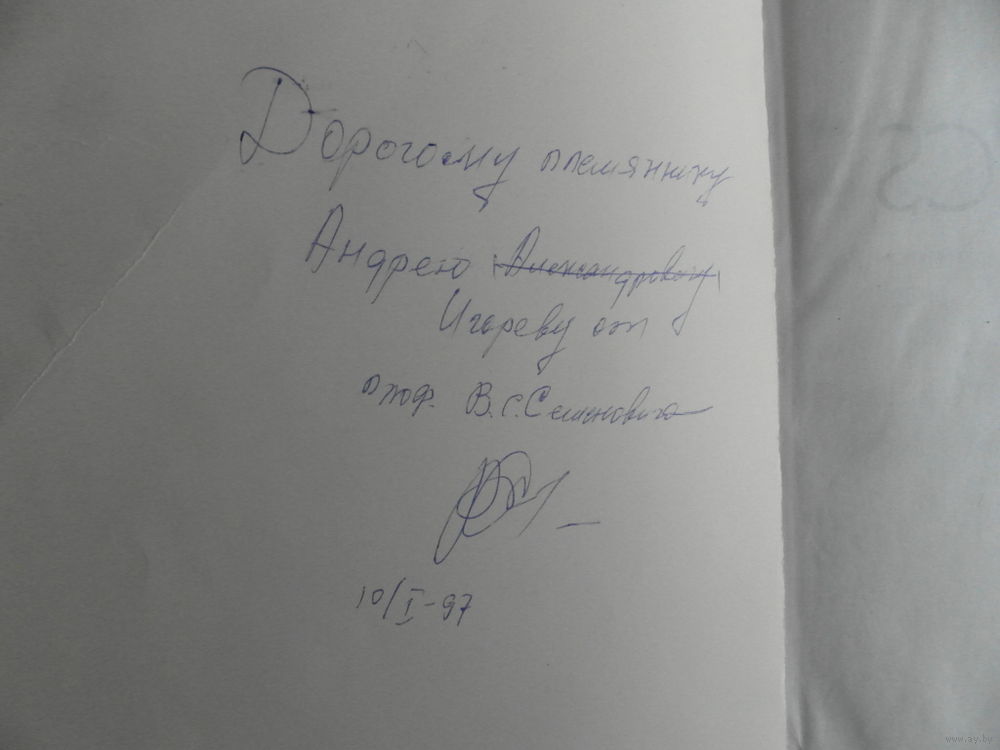 Дорогому племяннику
Андрею Александровичу
Игореву от
проф. В.С. Семеновича
10/I-97
www.ay.by